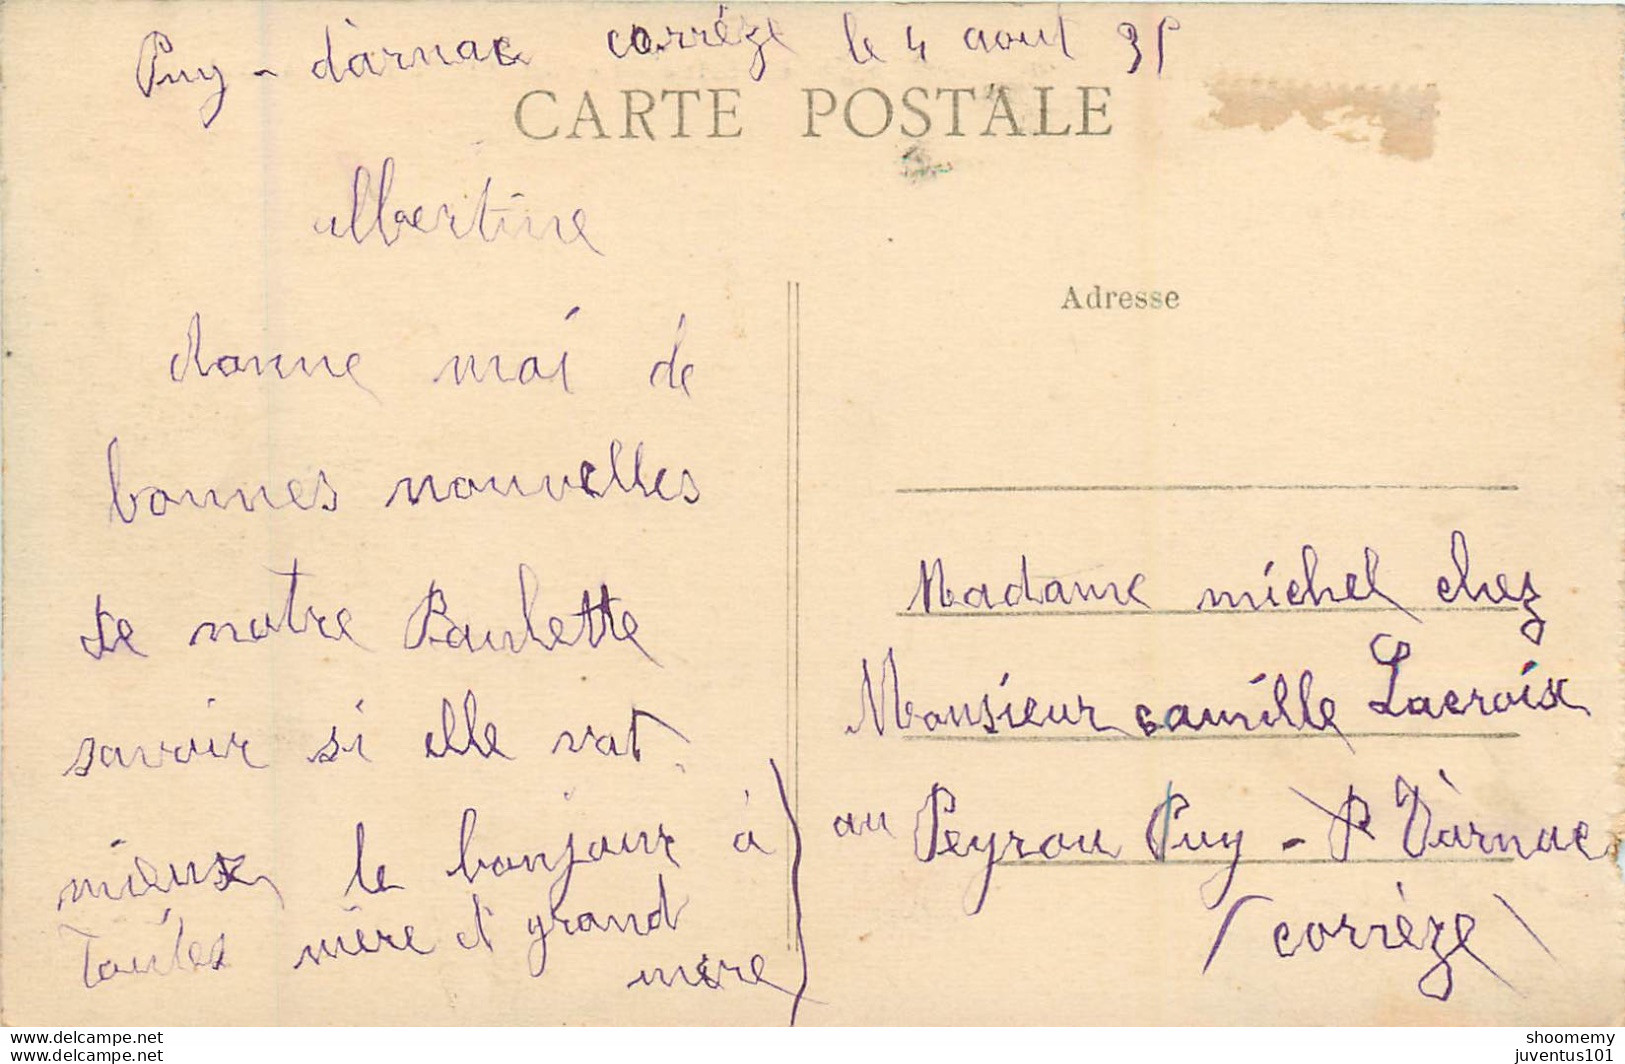 Puy - d'arnac corréze le 4 aout
CARTE POSTALE
Albertine
donne moi de
bonnes nouvelles
de notre Paulette
savoir si elle vat
mieux, le bonjour à
toutes mère et grand
mère
Adresse
Madame michel chez
Monsieur camille Lacroix
au Peyrou Puy - D'àrnac
(corrèze)
www.delcampe.net
www.delcampe.net
shoomemy
juventus101